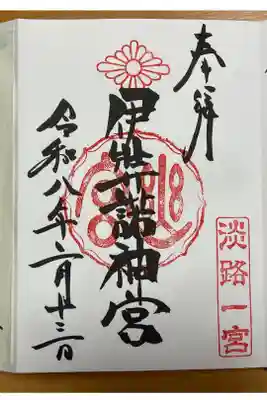 奉拝
伊弉諾神宮
淡路一宮
令和八年二月十三日